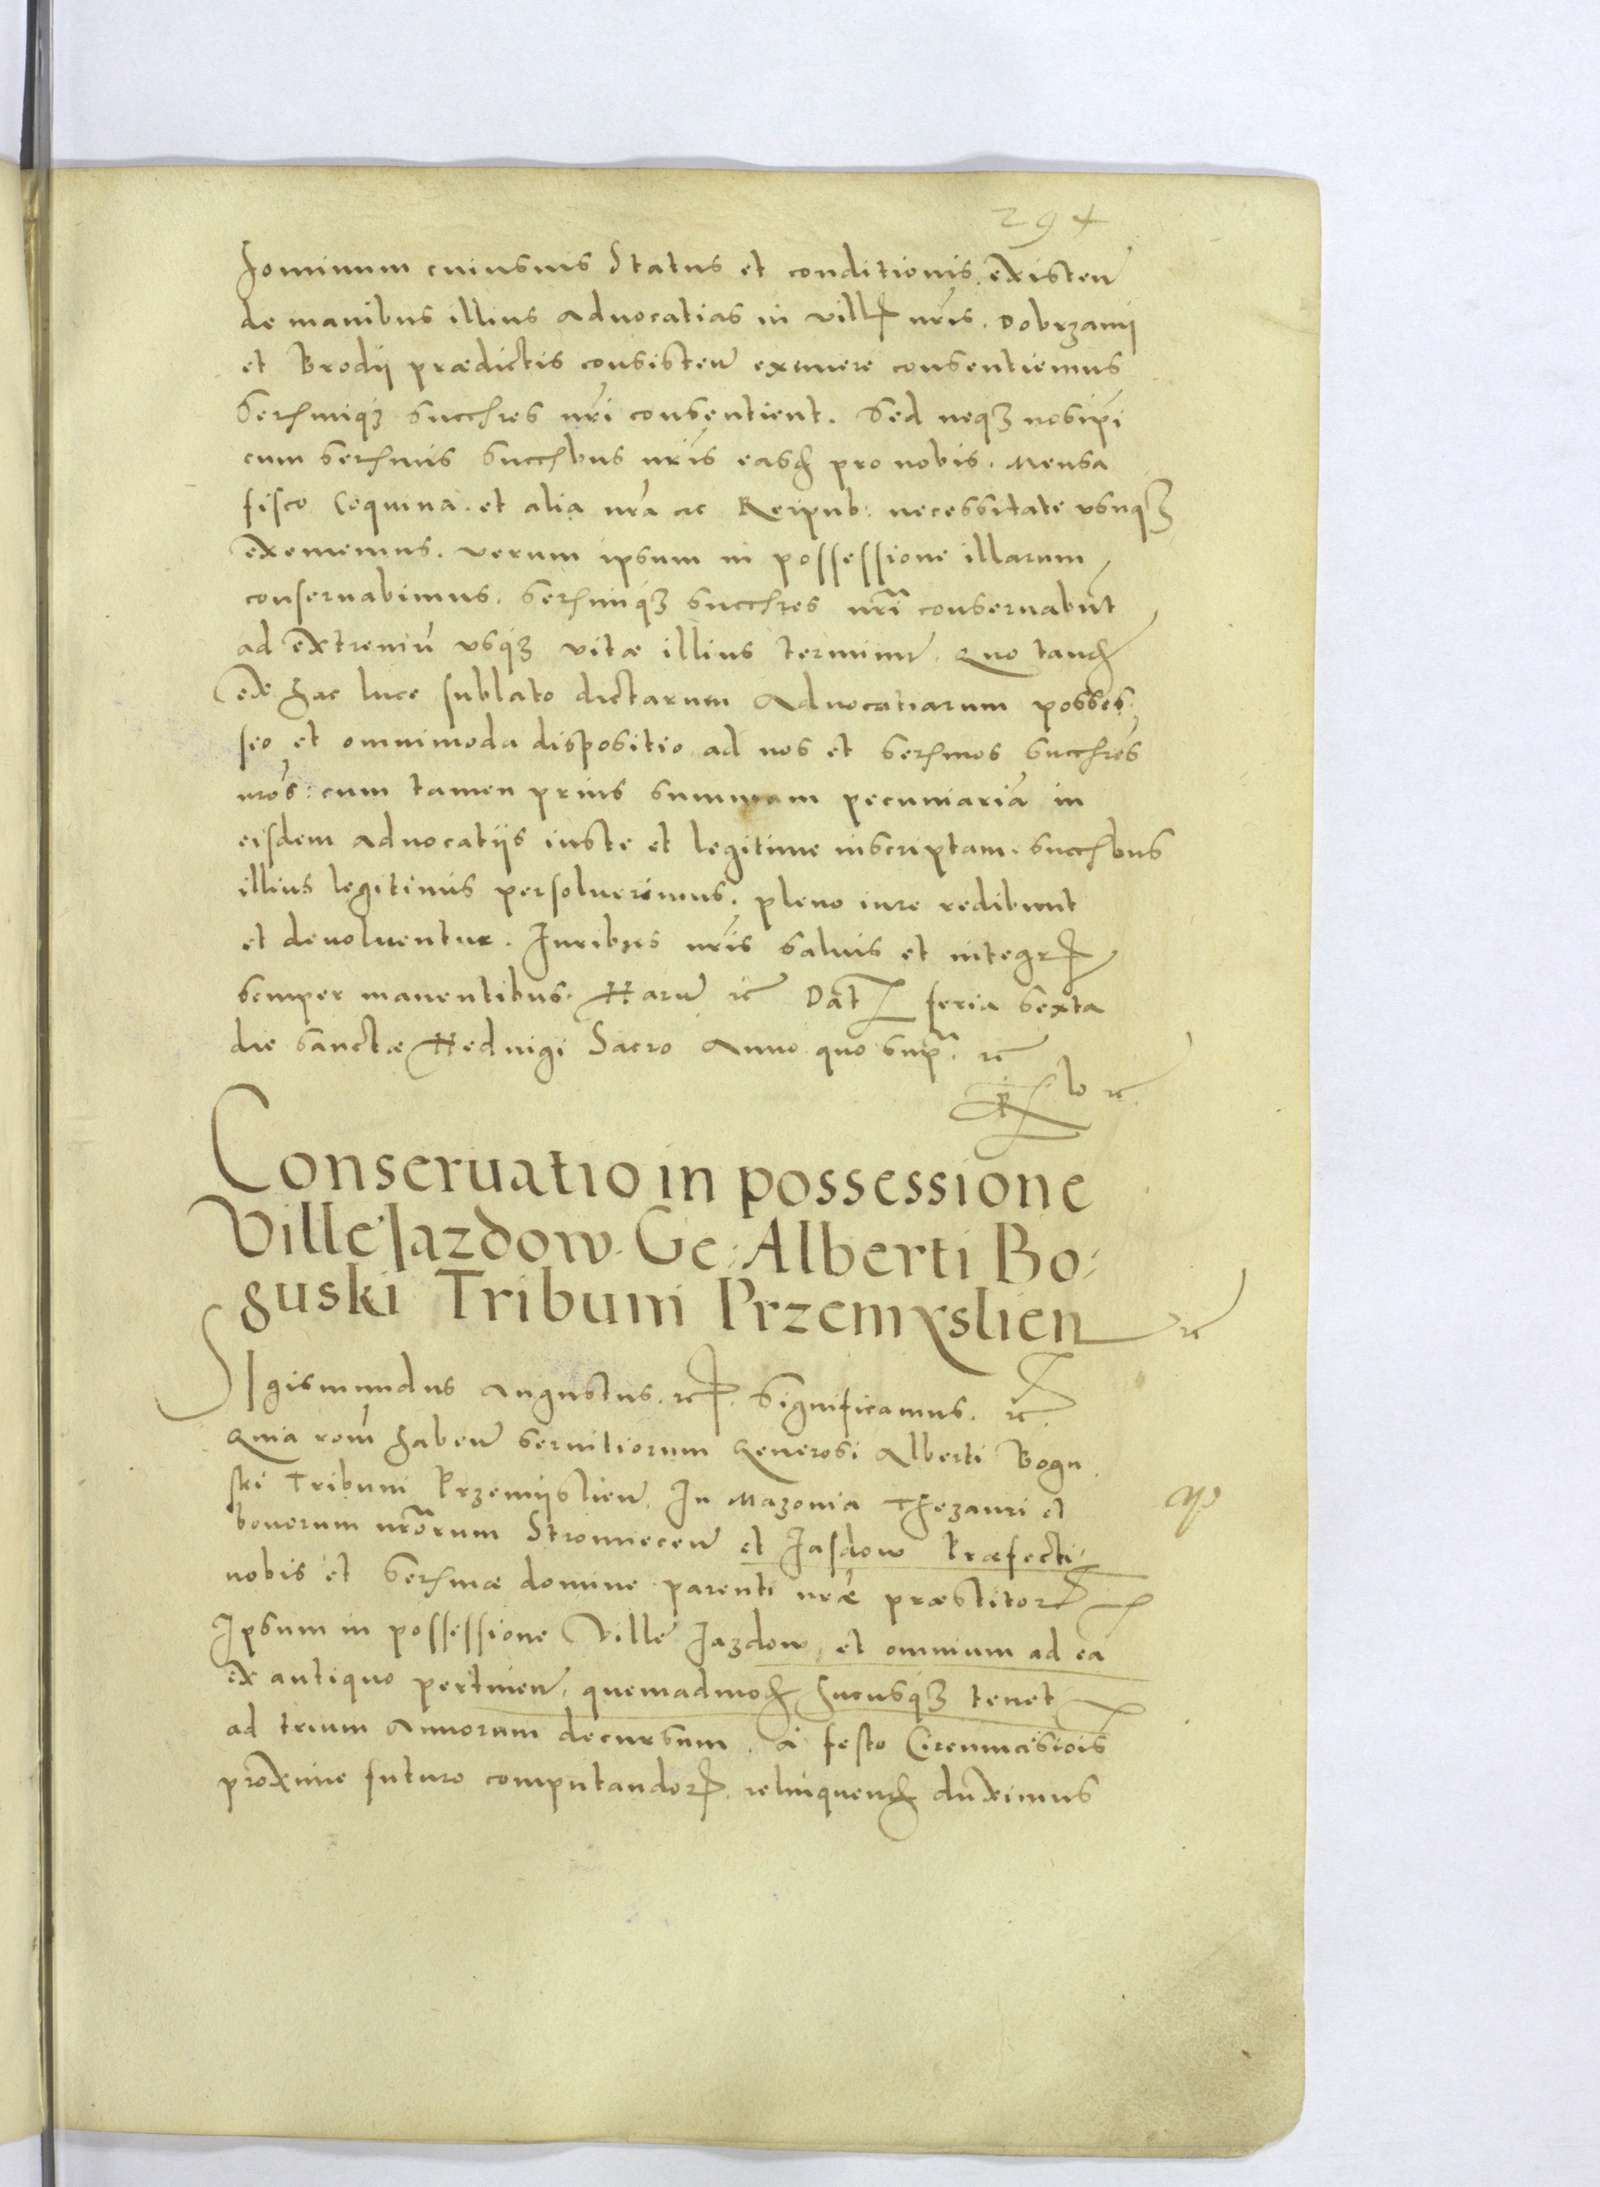 294
hominum cuiusuis Status et conditionis existen
de manibus illius aduocatias in vill nris. Dobrzanij
et Brodij prædictis consisten eximere consentiemus
Serhmiq3 succhres nri consentient. Sed neq3 nosipi
cum serhmis succhbus nris easd pro nobis. Mensa
fisco Coquina. et alia nra ac Reipub: necessitate vsuq3
eximemus. verum ipsum in possessione illarum
conseruabimus. serhmiq3 succhres nri conseruabut
ad extremu vsq3 vitæ illius terminu. Quo tand
ex hac luce sublato dictarum Aduocatiarum posses:
sio et omnimoda dispositio ad nos et serhmos succhres
nros: cum tamen prius summam pecuniaria in
eisdem aduocatijs iuste et legitime inscriptam. succhbus
illius legitimis persoluerimus. pleno iure redibunt
et deuoluentur. Iuribus nris saluis et integr
semper manentibus. Haru rc Dat feria sexta
die sanctæ Heduigi Sacro Anno quo supra. rc
rc
Conseruatio in possessione
Ville Jazdow. Ge: Alberti Bo:
guski Tribuni Przemyslien rc
SIgismundus Augustus. rc. Significamus. rc.
Quia rom haben seruitiorum Generosi Alberti Bogu
ski Tribuni Przemijslien. In Mazouia Thezauri et
bonorum nrorum Stromecen et Jasdow Præfecti
nobis et Serhmæ domine parenti nræ præstitor
Ipsum in possessione Ville Jazdow, et omnium ad ea
ex antiquo pertinen. quemadmod hucusq3 tenet
ad trium Annorum decursum. à festo Circumcisiois
proxime futuro computandor. relinquend duximus